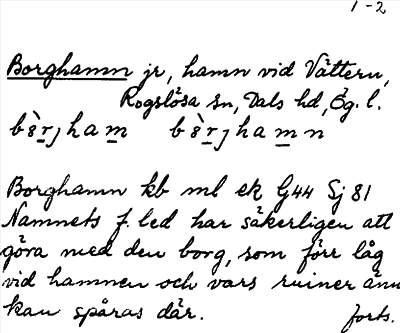 1-2
Borghamn jr, hamn vid Vättern,
Rogslösa sn, Dals hd, Ög. l.
Borghamn kb ml ek G44 Sj 81
Namnets f. led har säkerligen att
göra med den borg, som förr låg
vid hamnen och vars ruiner ännu
kan spåras där. forts.